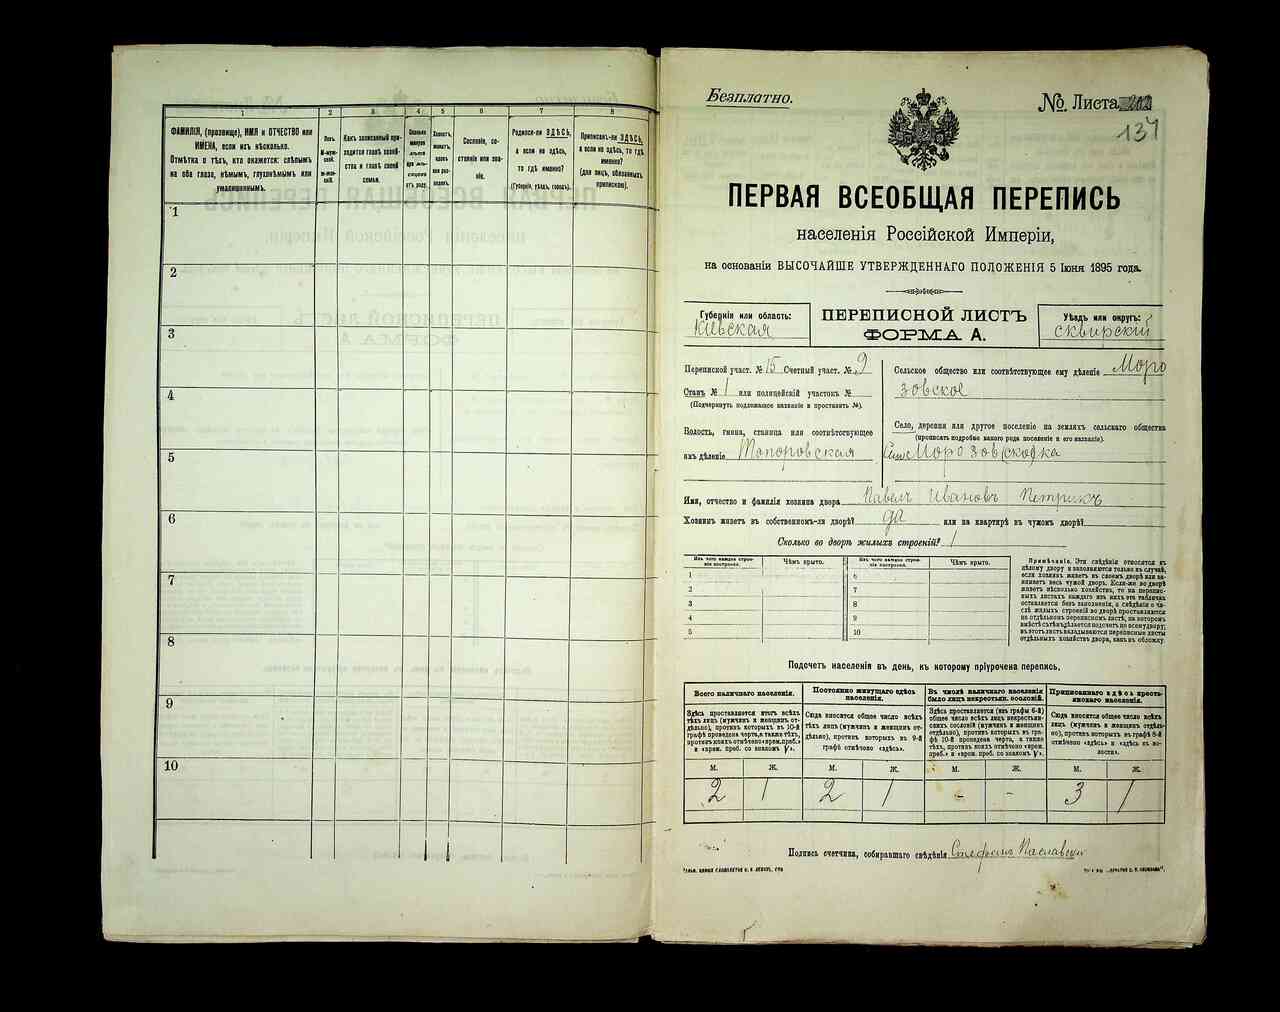 1
2
3
4
5
6
7
8
ФАМИЛІЯ, (прозвище), ИМЯ и ОТЧЕСТВО или
ИМЕНА, если ихъ нѣсколько.
Отмѣтка о тѣхъ, кто окажется: слѣпымъ
на оба глаза, нѣмымъ, глухонѣмымъ или
умалишеннымъ.
Полъ.
М-муж-
ской.
Ж-жен-
скій.
Какъ записанный при-
ходится главѣ хозяй-
ства и главѣ своей
семьи.
Сколько
минуло
лѣтъ
или мѣ-
сяцевъ
отъ роду.
Холостъ,
женатъ,
вдовъ
или раз-
веденъ.
Сословіе, со-
стояніе или зва-
ніе.
Родился-ли ЗДѢСЬ,
а если не здѣсь,
то гдѣ именно?
(Губернія, уѣздъ, городъ).
Приписанъ-ли ЗДѢСЬ,
а если не здѣсь, то гдѣ
именно?
(для лицъ, обязанныхъ
припискою).
1
2
3
4
5
6
7
8
9
10
Безплатно.
№ Листа
134
ПЕРВАЯ ВСЕОБЩАЯ ПЕРЕПИСЬ
населенія Россійской Имперіи,
на основаніи ВЫСОЧАЙШЕ УТВЕРЖДЕННАГО ПОЛОЖЕНІЯ 5 Іюня 1895 года.
Губернія или область:
Кіевская
ПЕРЕПИСНОЙ ЛИСТЪ
ФОРМА А.
Уѣздъ или округъ:
сквирскій
Переписной участ. № 15 Счетный участ. № 9
Станъ № 1 или полицейскій участокъ №
(Подчеркнуть подлежащее названіе и проставить №).
Волость, гмина, станица или соотвѣтствующее
имъ дѣленіе Топоровская
Сельское общество или соотвѣтствующее ему дѣленіе Моро
зовское
Село, деревня или другое поселеніе на земляхъ сельскаго общества
(прописать подробно какого рода поселеніе и его названіе).
Морозовка
Имя, отчество и фамилія хозяина двора Павелъ Ивановъ Петрикъ
Хозяинъ живетъ въ собственномъ-ли дворѣ? да или на квартирѣ въ чужомъ дворѣ?
Сколько во дворѣ жилыхъ строеній? 1
Изъ чего каждое строе-
ніе построено.
Чѣмъ крыто.
Изъ чего каждое строе-
ніе построено.
Чѣмъ крыто.
1
2
3
4
5
6
7
8
9
10
Примѣчаніе. Эти свѣдѣнія относятся къ
цѣлому двору и заполняются только въ случаѣ,
если хозяинъ живетъ въ своемъ дворѣ или за-
нимаетъ весь чужой дворъ. Если-же во дворѣ
живетъ нѣсколько хозяйствъ, то на перепис-
ныхъ листахъ каждаго изъ нихъ эта табличка
оставляется безъ заполненія, а свѣдѣнія о чи-
слѣ жилыхъ строеній во дворѣ проставляются
на отдѣльномъ переписномъ листѣ, на которомъ
вмѣстѣ съ тѣмъ дѣлается подсчетъ по всему двору;
въ этотъ листъ вкладываются переписные листы
отдѣльныхъ хозяйствъ двора, какъ въ обложку.
Подсчетъ населенія въ день, къ которому пріурочена перепись.
Всего наличнаго населенія.
Постоянно живущаго здѣсь
населенія.
Въ числѣ наличнаго населенія
было лицъ некрестьян. сословій.
Приписаннаго здѣсь кресть-
янскаго населенія.
Здѣсь проставляется итогъ всѣхъ
тѣхъ лицъ (мужчинъ и женщинъ от-
дѣльно), противъ которыхъ въ 10-й
графѣ проведена черта, а также тѣхъ,
противъ коихъ отмѣчено «врем. преб.»
и «врем. преб. со знакомъ V».
Сюда вносится общее число всѣхъ
тѣхъ лицъ (мужчинъ и женщинъ от-
дѣльно), противъ которыхъ въ 9-й
графѣ отмѣчено «здѣсь».
Здѣсь проставляется (изъ графы 6-й)
общее число всѣхъ лицъ некрестьян-
скихъ сословій (мужчинъ и женщинъ
отдѣльно), противъ которыхъ въ гра-
фѣ 10-й проведена черта, а также
тѣхъ, противъ коихъ отмѣчено «врем.
преб.» и «врем. преб. со знакомъ V».
Сюда вносится общее число всѣхъ
лицъ (мужчинъ и женщинъ отдѣль-
но), противъ которыхъ въ графѣ 8-й
отмѣчено «здѣсь» и «здѣсь въ во-
лости».
М. Ж. М. Ж. М. Ж. М. Ж.
2 1 2 1 - - 3 1
Подпись счетчика, собиравшаго свѣдѣнія